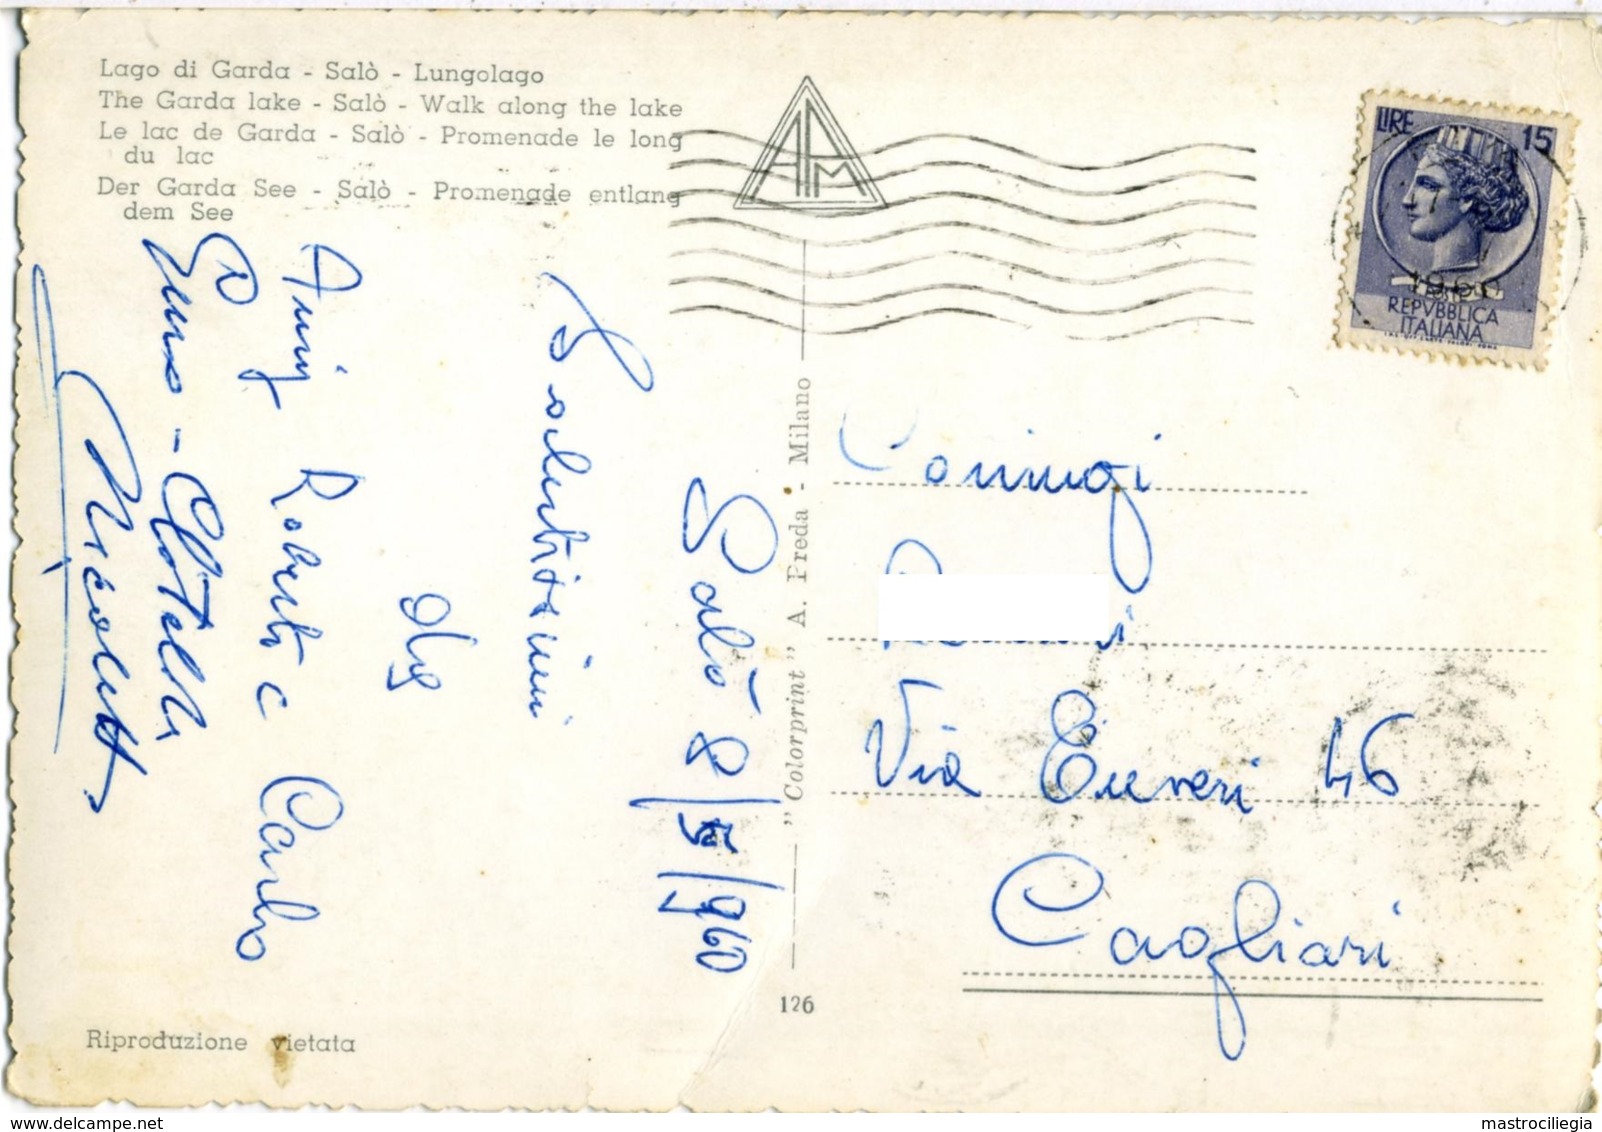 Lago di Garda - Salò - Lungolago
The Garda lake - Salò - Walk along the lake
Le lac de Garda - Salò - Promenade le long
du lac
Der Garda See - Salò - Promenade entlang
dem See
AAPM
LIRE 15
1960
POSTE
REPVBBLICA
ITALIANA
Salò 8/5/960
Salutissimi
da
Roberto e Carlo
Nicoletta
" Colorprint " A. Preda - Milano
Coniugi
Via 46
Cagliari
126
Riproduzione vietata
delcampe.net
mastrociliegia